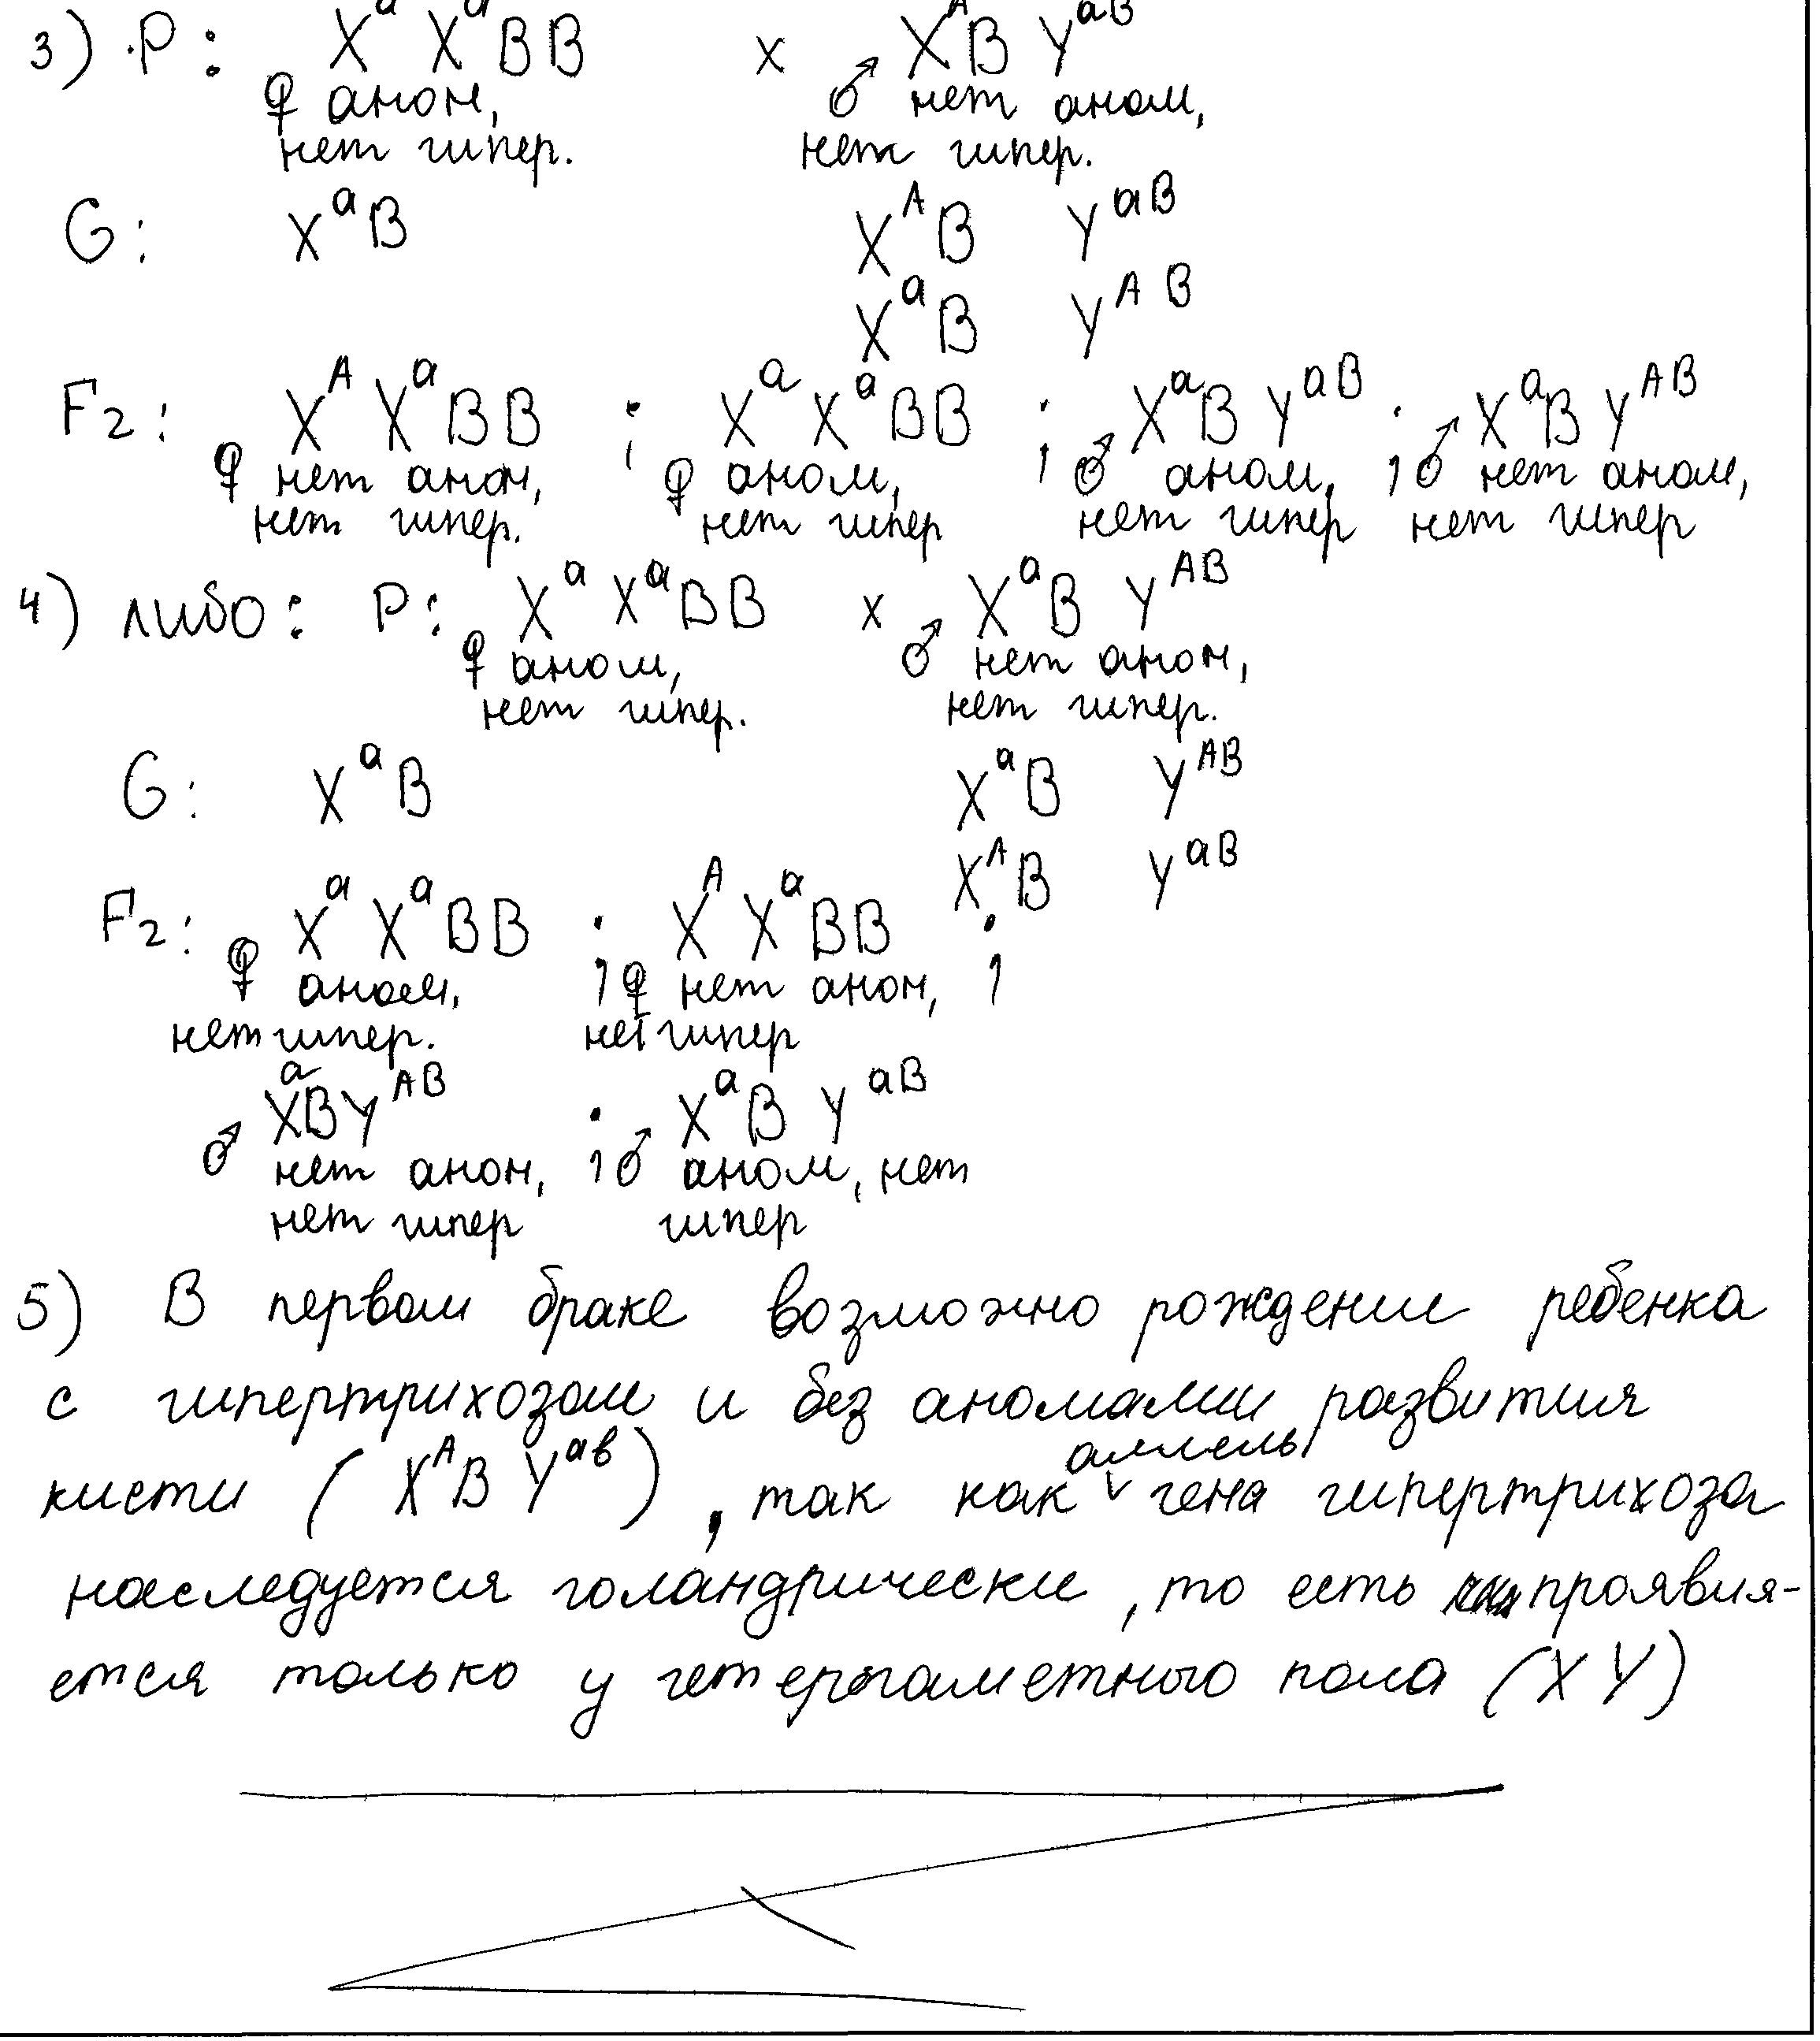 3) P: X^a X^a BB x ♂ X^A B Y^aB
♀ аном, нет аном,
нет гипер. нет гипер.
G: X^a B X^A B Y^aB
X^a B Y^AB
F2: X^A X^a BB ; X^a X^a BB ; X^a B Y^aB ; X^a B Y^AB
♀ нет аном, ♀ аном, ♂ аном, ♂ нет аном,
нет гипер. нет гипер нет гипер нет гипер
4) либо: P: X^a X^a BB x X^a B Y^AB
♀ аном, ♂ нет аном,
нет гипер. нет гипер.
G: X^a B X^a B Y^AB
X^A B Y^aB
F2: X^a X^a BB ; X^A X^a BB ;
♀ аном, ♀ нет аном,
нет гипер. нет гипер
X^a B Y^AB ; X^a B Y^aB
♂ нет аном, ♂ аном, нет
нет гипер гипер
5) В первом браке возможно рождении ребенка
с гипертрихозом и без аномалии развития
кисти (X^A B Y^ав), так как аллель гена гипертрихоза
наследуется голандрически, то есть проявля-
ется только у гетерогаметного пола (XY)